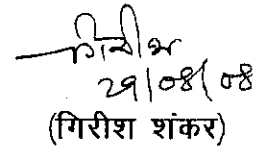 गिरीश
29/08/08
(गिरीश शंकर)